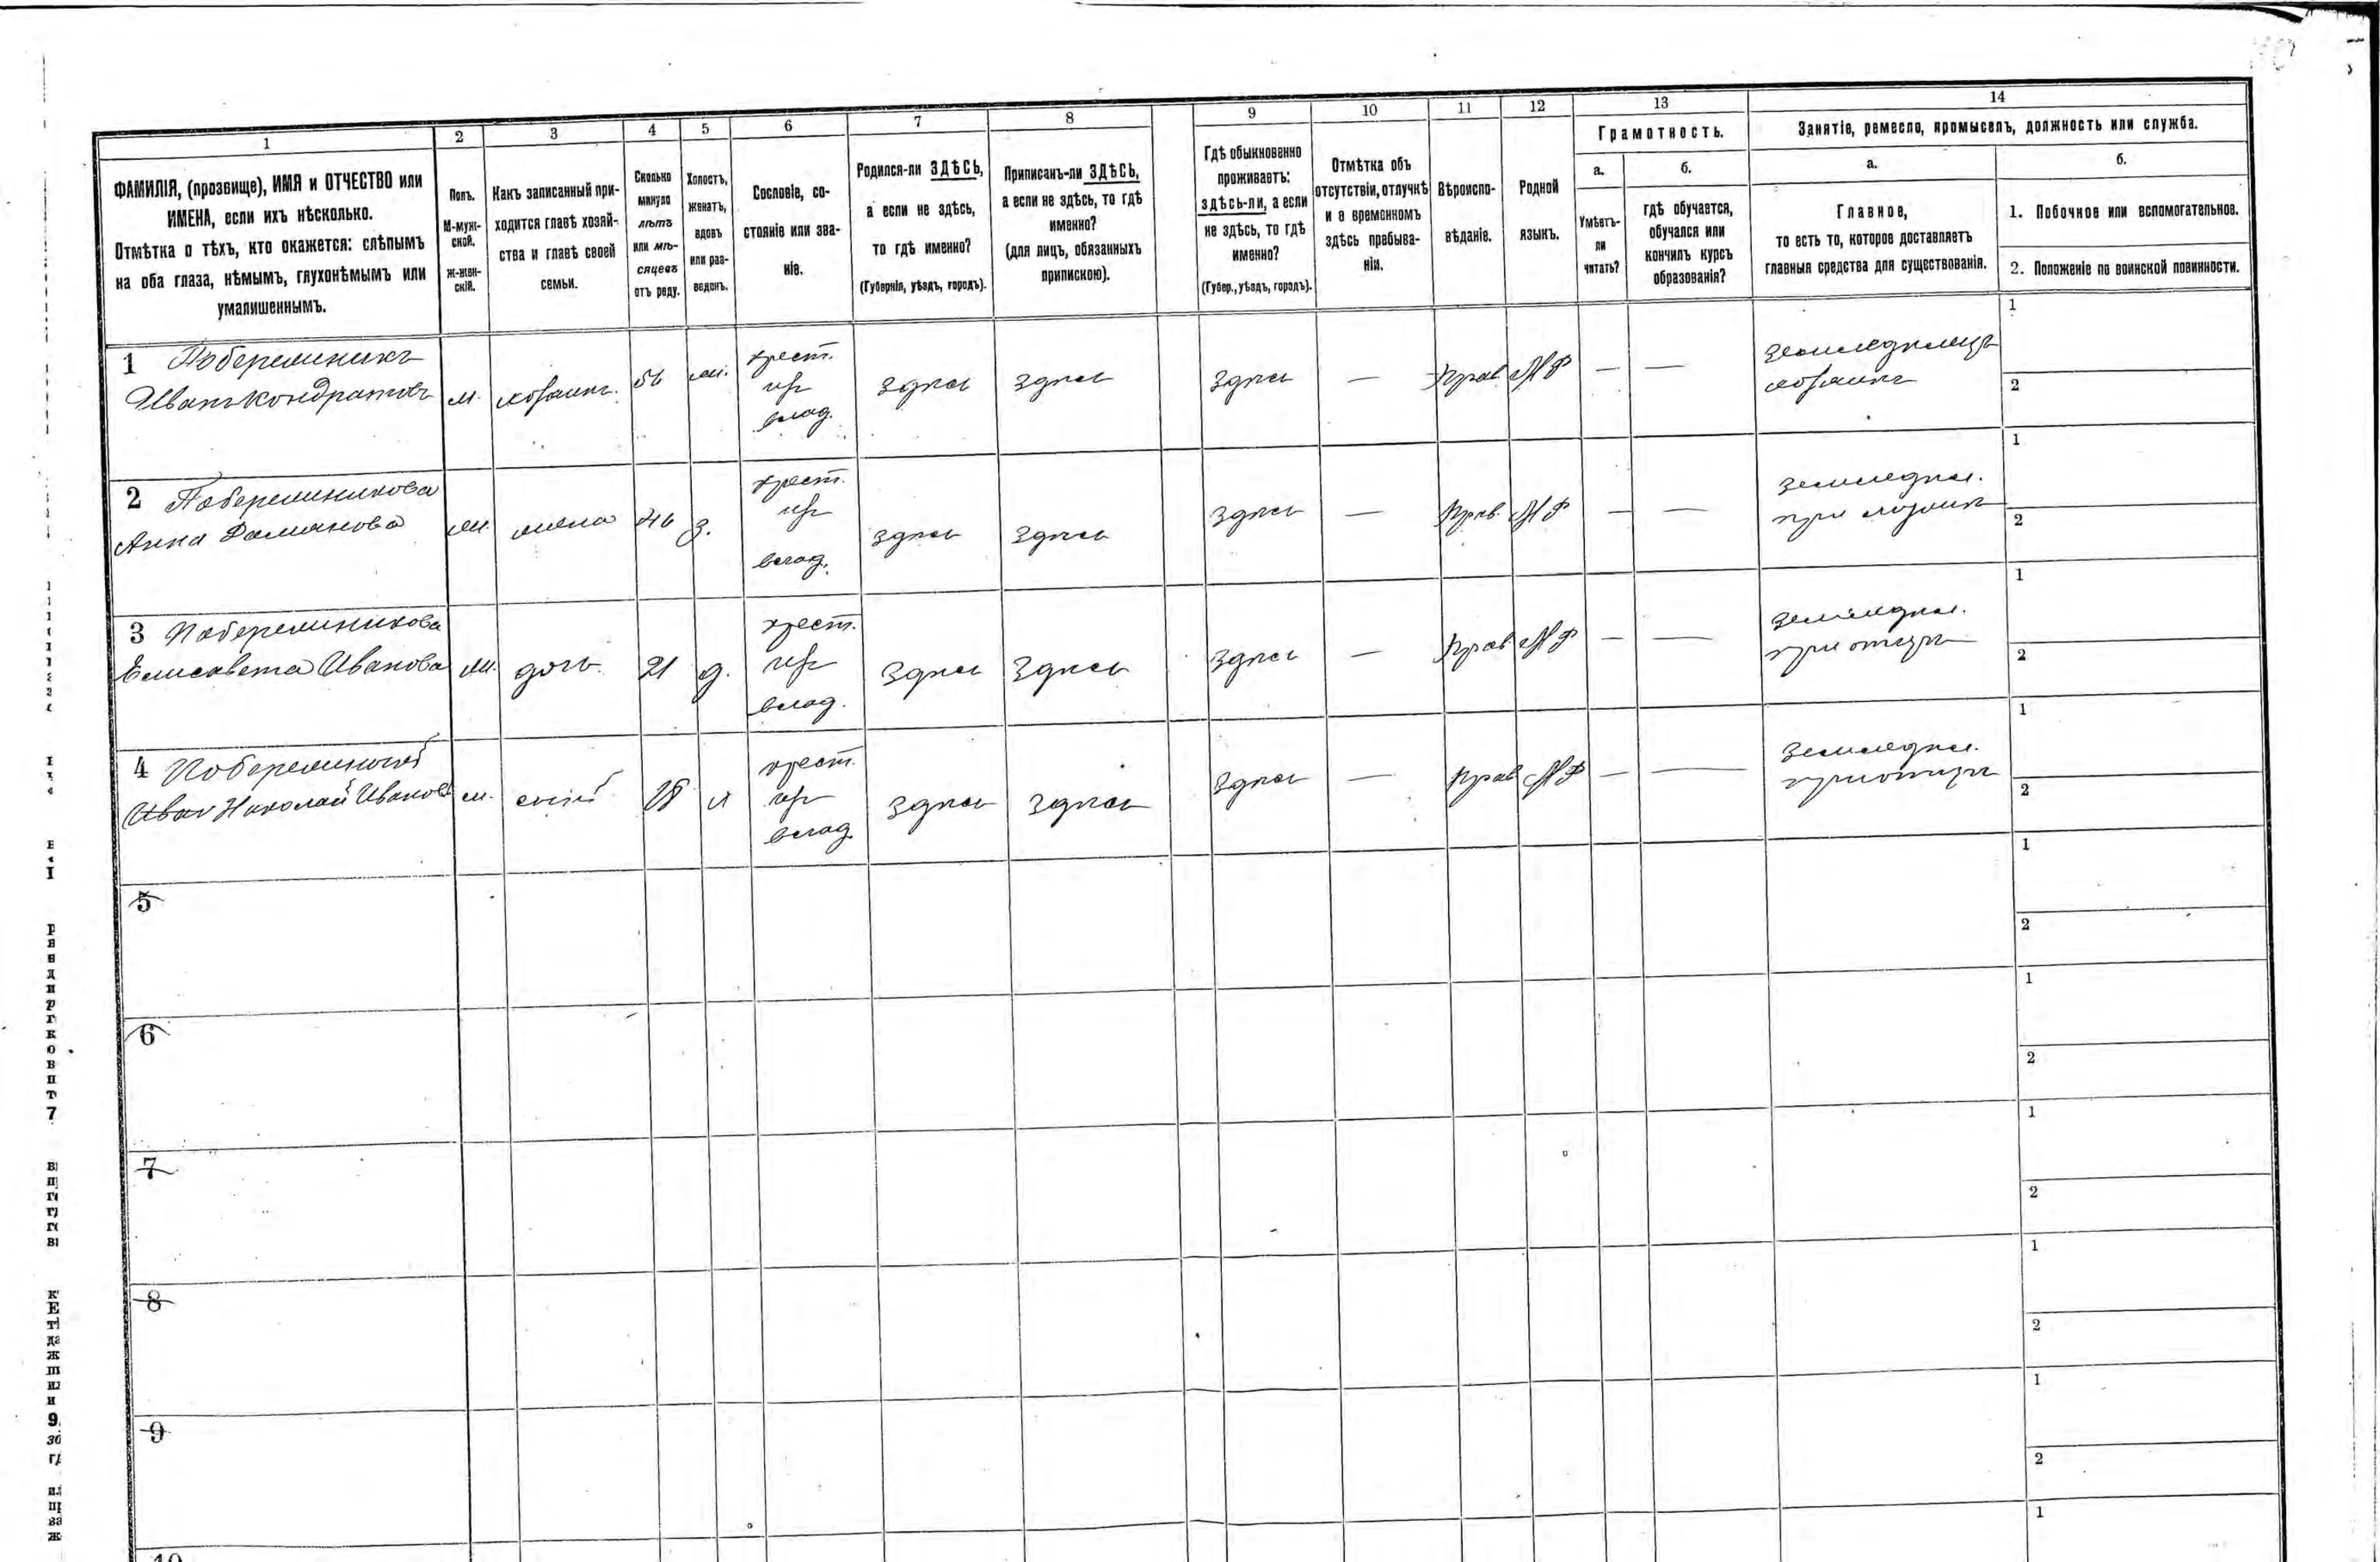 1
2
3
4
5
6
7
8
9
10
11
12
13
14
ФАМИЛІЯ, (прозвище), ИМЯ и ОТЧЕСТВО или
ИМЕНА, если ихъ нѣсколько.
Отмѣтка о тѣхъ, кто окажется: слѣпымъ
на оба глаза, нѣмымъ, глухонѣмымъ или
умалишеннымъ.
Полъ.
М-муж-
ской.
Ж-жен-
скій.
Какъ записанный при-
ходится главѣ хозяй-
ства и главѣ своей
семьи.
Сколько
минуло
лѣтъ
или мѣ-
сяцевъ
отъ роду.
Холостъ,
женатъ,
вдовъ
или раз-
веденъ.
Сословіе, со-
стояніе или зва-
ніе.
Родился-ли ЗДѢСЬ,
а если не здѣсь,
то гдѣ именно?
(Губернія, уѣздъ, городъ).
Приписанъ-ли ЗДѢСЬ,
а если не здѣсь, то гдѣ
именно?
(для лицъ, обязанныхъ
припискою).
Гдѣ обыкновенно
проживаетъ:
здѣсь-ли, а если
не здѣсь, то гдѣ
именно?
(Губер., уѣздъ, городъ).
Отмѣтка объ
отсутствіи, отлучкѣ
и о временномъ
здѣсь пребыва-
ніи.
Вѣроиспо-
вѣданіе.
Родной
языкъ.
Грамотность.
а.
Умѣетъ-
ли
читать?
б.
гдѣ обучается,
обучался или
кончилъ курсъ
образованія?
Занятіе, ремесло, промыселъ, должность или служба.
а.
Главное,
то есть то, которое доставляетъ
главныя средства для существованія.
б.
1. Побочное или вспомогательное.
2. Положеніе по воинской повинности.
1 Побережникъ
Иванъ Кондратовъ
м.
хозяинъ.
56
ж.
крест.
влад.
здѣсь
здѣсь
здѣсь
—
Прав.
—
—
земледѣлецъ
хозяинъ
1
2
2 Побережникова
Анна Романова
ж.
жена
46
з.
крест.
влад.
здѣсь
здѣсь
здѣсь
—
Прав.
—
—
земледѣл.
при
1
2
3 Побережникова
Елисавета Иванова
ж.
дочь.
21
д.
крест.
влад.
здѣсь
здѣсь
здѣсь
—
Прав
—
—
земледѣл.
при отцѣ
1
2
4
Иван Николай Иванов
м.
18
х
крест.
влад
здѣсь
здѣсь
здѣсь
—
Прав
—
—
земледѣл.
при отцѣ
1
2
5
1
2
6
1
2
7
1
2
8
1
2
9
1
2
10
1